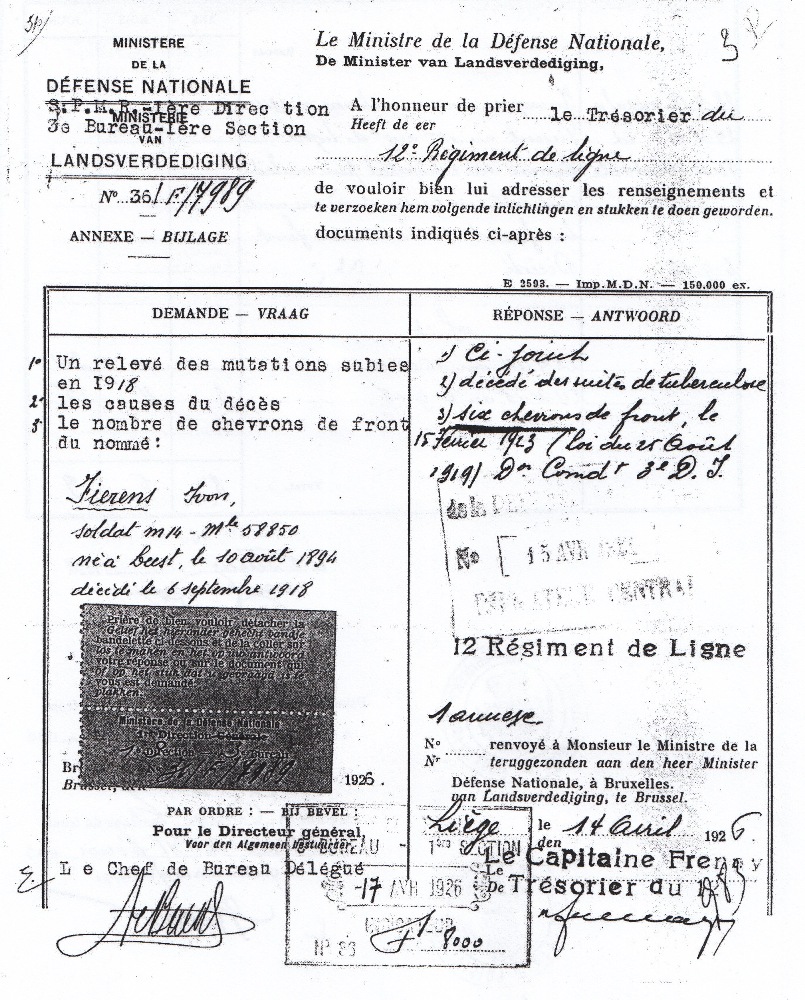 MINISTERE
DE LA
DÉFENSE NATIONALE
S.P.M.R.-Ière Direction
MINISTERIE
3e Bureau-Ière Section
VAN
LANDSVERDEDIGING
Nº 36/F/7989
ANNEXE — BIJLAGE
Le Ministre de la Défense Nationale,
De Minister van Landsverdediging,
A l'honneur de prier le Trésorier du
Heeft de eer
12e Régiment de ligne
de vouloir bien lui adresser les renseignements et
te verzoeken hem volgende inlichtingen en stukken te doen geworden.
documents indiqués ci-après :
E 2593. — Imp.M.D.N. — 150.000 ex.
DEMANDE — VRAAG
1º Un relevé des mutations subies
en 1918
2º les causes du décès
3 le nombre de chevrons de front
du nommé:
Fierens Ivon,
soldat m14 - Mle 58850
né à Beest, le 10 août 1894
décédé le 6 septembre 1918
Prière de bien vouloir détacher la
Gelief het hieronder gehecht bandje
bandelette ci-dessous et de la coller sur
los te maken en het op uw antwoord
votre réponse ou sur le document qui
of op het stuk dat u gevraagd is te
vous est demandé.
plakken.
Ministère de la Défense Nationale
Direction Générale
Direction Bureau
36/F/7989
1926.
PAR ORDRE : — BIJ BEVEL :
Pour le Directeur général,
Voor den Algemeen Bestuurder,
Le Chef de Bureau Délégué
RÉPONSE — ANTWOORD
1) Ci-joint
2) décédé des suites de tuberculose
3) six chevrons de front, le
15 Février 1923 (loi du 25 Août
1919) Don Comdt 3e D.I.
de la
No 15 AVR
CENTRAL
12 Régiment de Ligne
1 annexe
Nº renvoyé à Monsieur le Ministre de la
Nr teruggezonden aan den heer Minister
Défense Nationale, à Bruxelles.
van Landsverdediging, te Brussel.
Liège le 14 Avril 1926
den
Le Capitaine
Le
De Trésorier du
BUREAU - 1ère SECTION
-17 AVR 1926
INDICATEUR
Nº 83 F/ 8000